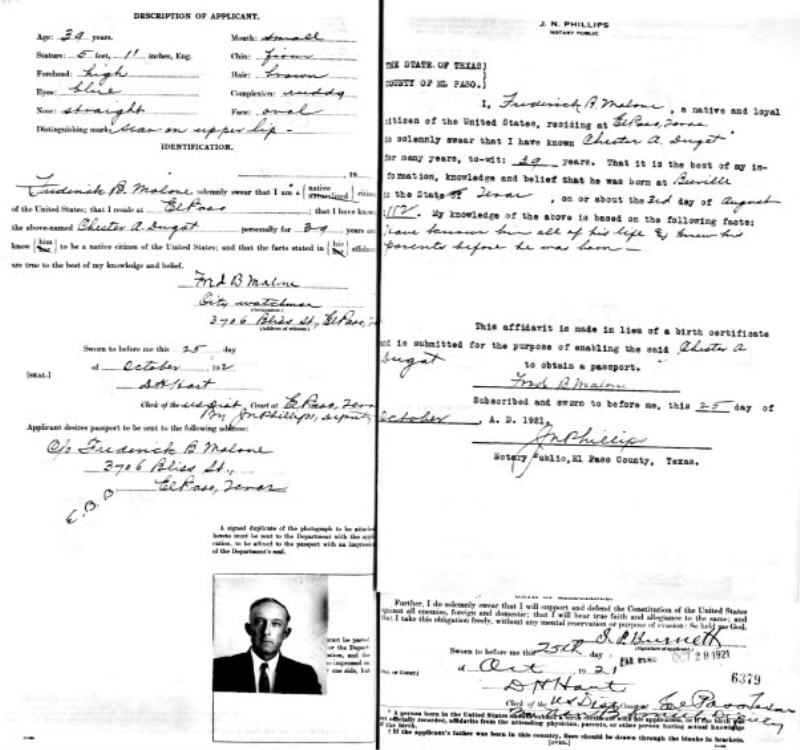 DESCRIPTION OF APPLICANT.
Age: 39 years. Mouth: small
Stature: 5 feet, 11 inches, Eng. Chin: firm
Forehead: high Hair: brown
Eyes: blue Complexion: ruddy
Nose: straight Face: oval
Distinguishing marks scar on upper lip -
IDENTIFICATION.
, 19
Frederick B. Malone solemnly swear that I am a { native naturalized } citizen
of the United States; that I reside at El Paso ; that I have known
the above-named Chester A. Dugat personally for 39 years and
know { him her } to be a native citizen of the United States; and that the facts stated in { his her } affidavit
are true to the best of my knowledge and belief.
Fred B Malone
City watchman
(Occupation.)
3706 Bliss St., El Paso,
(Address of witness.)
Sworn to before me this 25 day
of October , 192
[SEAL.]
D H Hart
Clerk of the US Dist. Court at El Paso, Texas
By JnPhillips, Deputy
Applicant desires passport to be sent to the following address:
c/o Frederick B Malone
3706 Bliss St.,
El Paso, Texas
E.B.B
A signed duplicate of the photograph to be attached
hereto must be sent to the Department with the appli-
cation, to be affixed to the passport with an impression
of the Department's seal.
J. N. PHILLIPS
NOTARY PUBLIC
THE STATE OF TEXAS)
COUNTY OF EL PASO.)
I, Frederick B. Malone , a native and loyal
citizen of the United States, residing at El Paso, Texas
do solemnly swear that I have known Chester A. Dugat
for many years, to-wit: 39 years. That it is the best of my in-
formation, knowledge and belief that he was born at Beeville
in the State of Texas , on or about the 3rd day of August
. My knowledge of the above is based on the following facts:
have known him all of his life & knew his
parents before he was born -
This affidavit is made in lieu of a birth certificate
and is submitted for the purpose of enabling the said Chester A
Dugat to obtain a passport.
Fred B Malone
Subscribed and sworn to before me, this 25 day of
October , A. D. 1921.
JnPhillips
Notary Public, El Paso County, Texas.
Further, I do solemnly swear that I will support and defend the Constitution of the United States
against all enemies, foreign and domestic; that I will bear true faith and allegiance to the same; and
that I take this obligation freely, without any mental reservation or purpose of evasion: So help me God.
(Signature of applicant.)
Sworn to before me this 25th day
OCT 28 1921
of Oct , 1921
6379
D H Hart
Clerk of the US Dist Court at El Paso Texas
* A person born in the United States should submit a birth certificate with his application, or if the birth was
not officially recorded, affidavits from the attending physician, parents, or other person having actual knowledge
of the birth.
† If the applicant's father was born in this country, lines should be drawn through the blanks in brackets.
[OVER.]